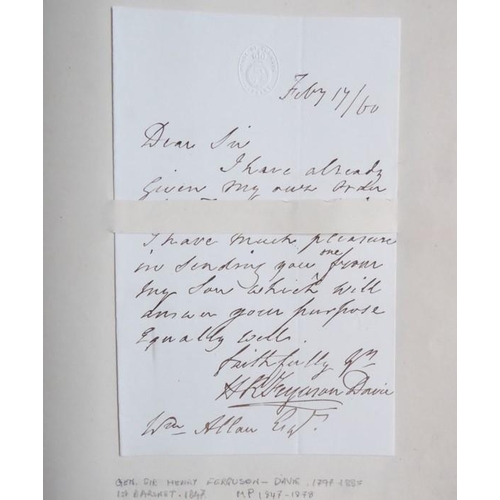 Feby 17/60
Dear Sir
I have already
given my own order
I have much pleasure
in sending you one from
my Son which will
answer your purpose
equally well.
faithfully yrs
H R Ferguson Davie
Wm Allan Esqr.
GEN. SIR HENRY FERGUSON-DAVIE. 1797-1885
1ST BARONET. 1847. MP 1847-1878